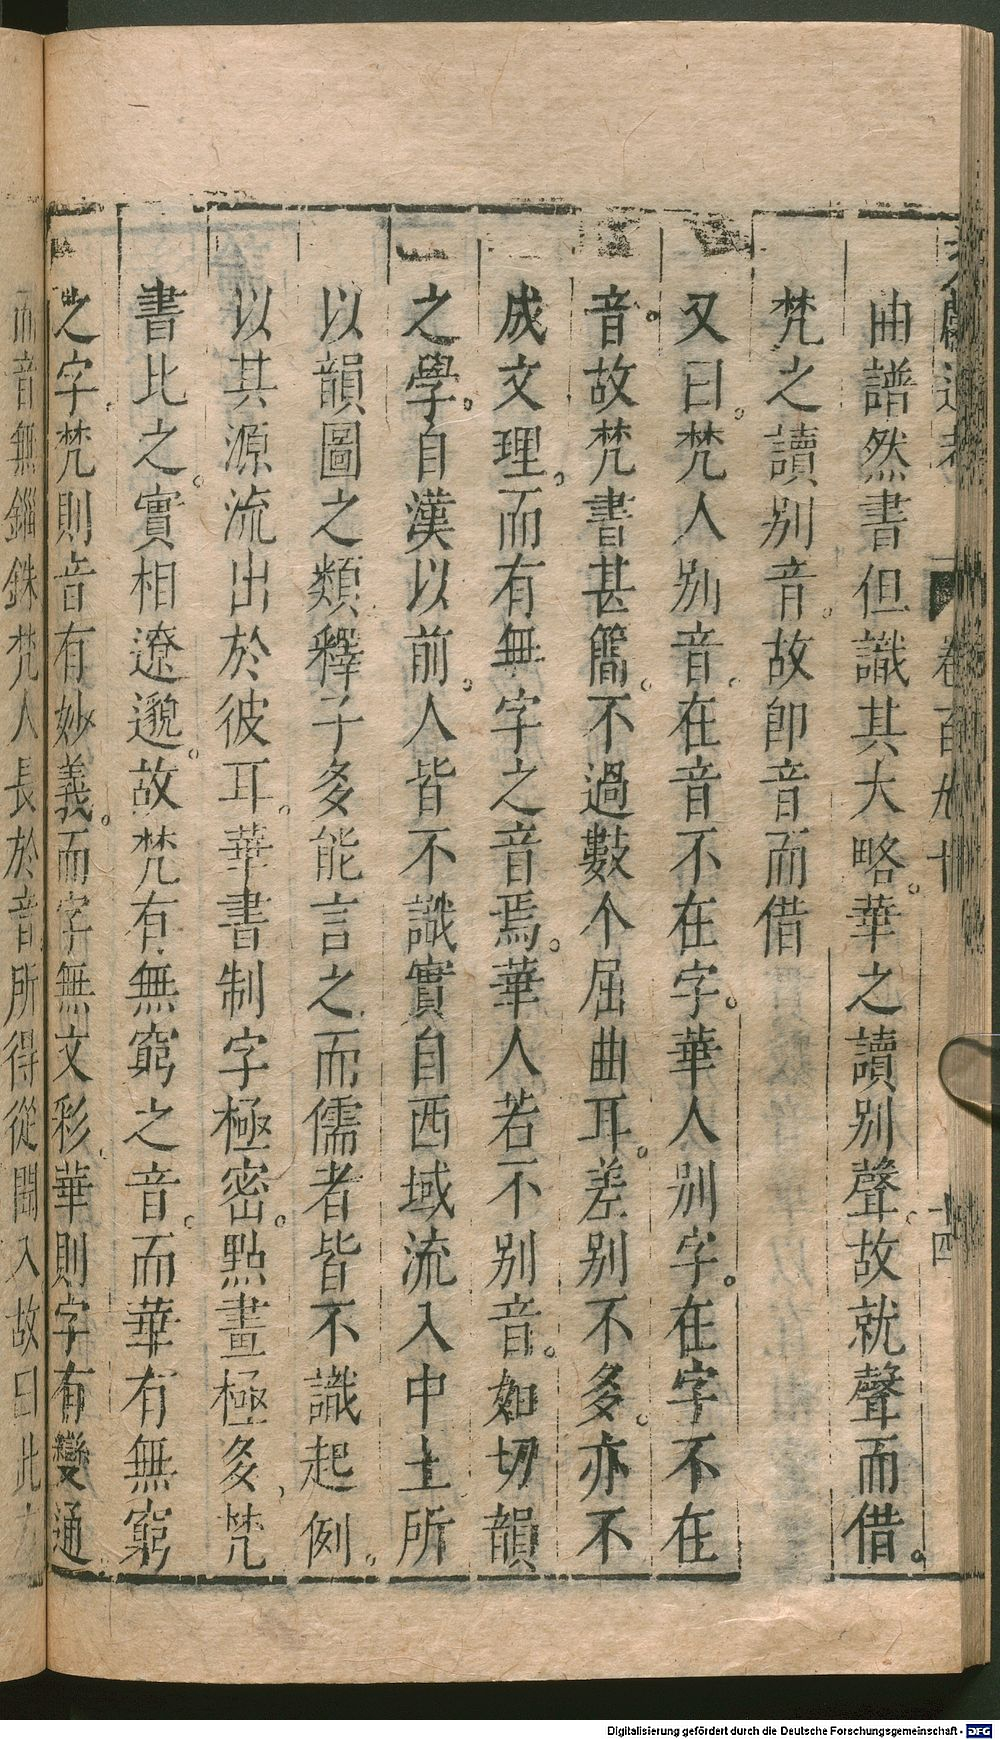 文獻通考 卷百九十 十四
曲譜然書但識其大略。華之讀别聲。故就聲而借。
梵之讀别音。故即音而借
又曰。梵人别音。在音不在字。華人别字。在字不在
音。故梵書甚簡。不過數个屈曲耳。差别不多。亦不
成文理。而有無字之音焉。華人若不别音。如切韻
之學。自漢以前。人皆不識實自西域流入中土所
以韻圖之類釋子多能言之而儒者皆不識起例。
以其源流出於彼耳。華書制字極密。點畫極多、梵
書比之。實相遼邈。故梵有無窮之音。而華有無窮
之字。梵則音有妙義。而字無文彩、華則字有變通
而音無錙銖梵人長於音所得從聞入故曰此
Digitalisierung gefördert durch die Deutsche Forschungsgemeinschaft - DFG